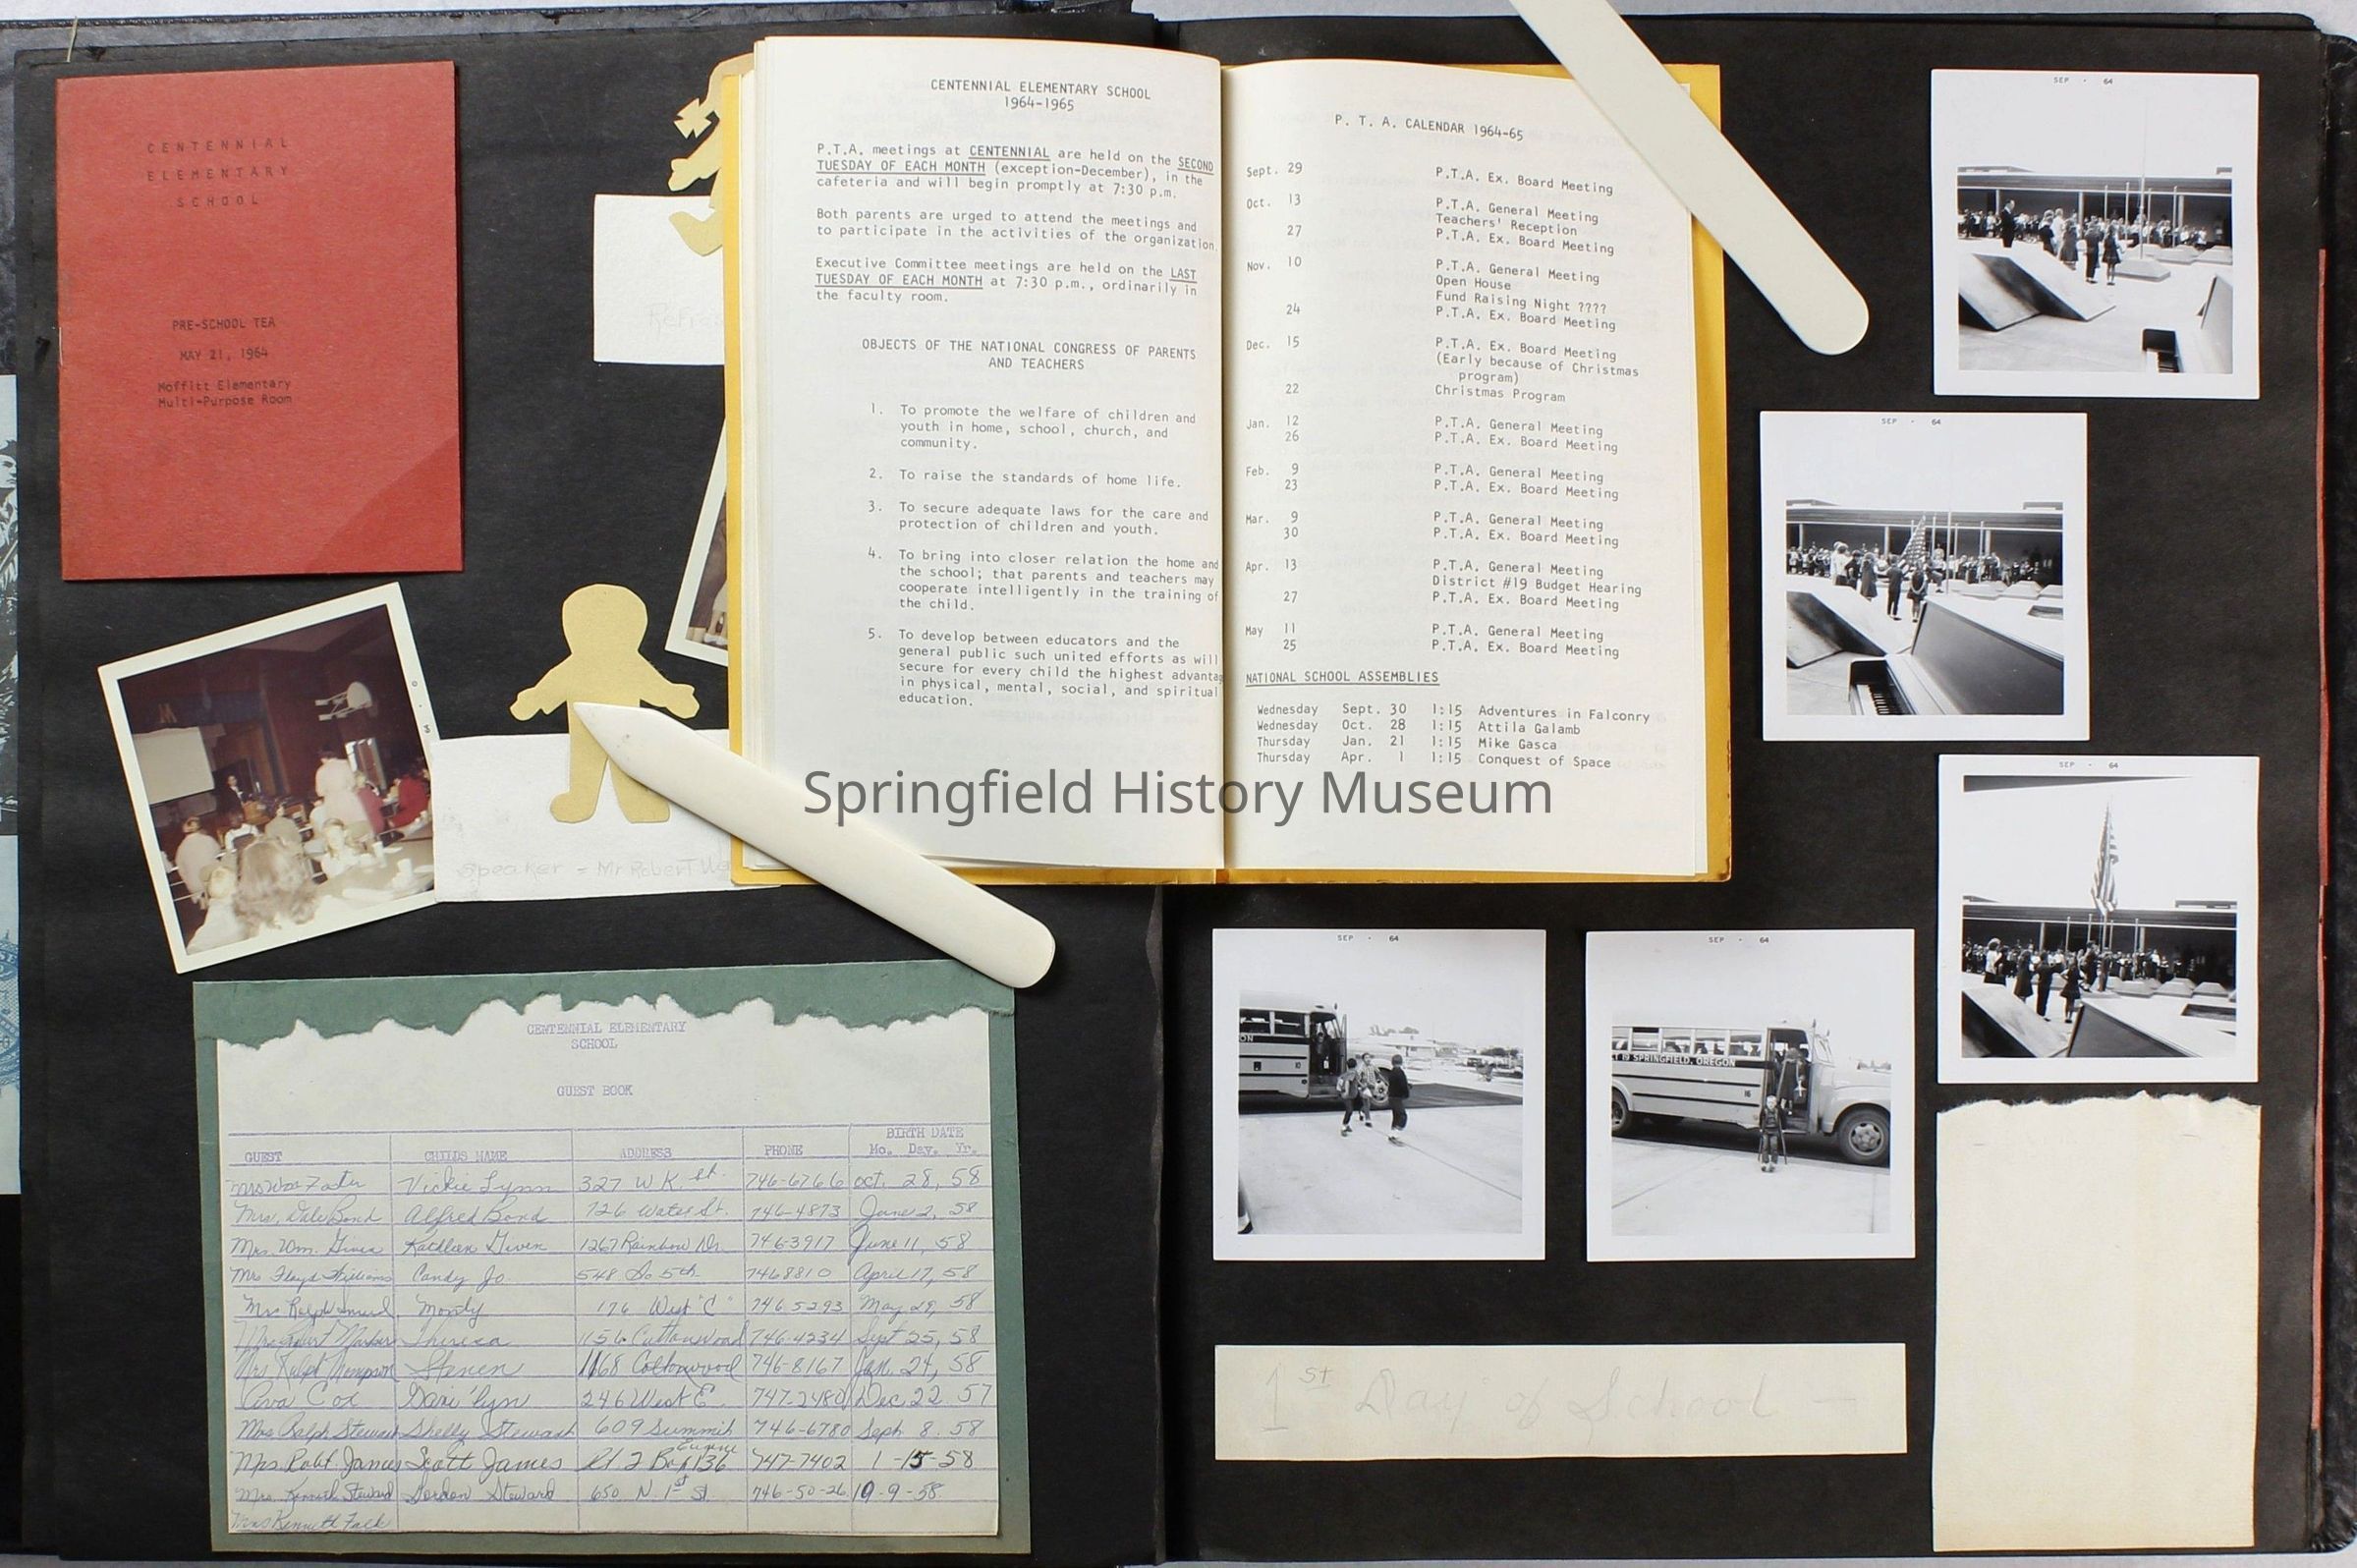 CENTENNIAL
ELEMENTARY
SCHOOL
PRE-SCHOOL TEA
MAY 21, 1964
Moffitt Elementary
Multi-Purpose Room
M
Speaker - Mr Robert
CENTENNIAL ELEMENTARY
SCHOOL
GUEST BOOK
GUEST CHILDS NAME ADDRESS PHONE BIRTH DATE
Mo. Day. Yr.
Vickie Lynn 327 W K. St. 746-6766 Oct. 28, 58
Mrs. Dale Bond Alfred Bond 726 Water St. 746-4873 June 2, 58
Mrs. Wm. Given Kathleen Given 1267 Rainbow Dr. 746-3917 June 11, 58
Mrs Floyd Williams Candy Jo 548 So 5th 7468810 April 17, 58
Mrs Ralph Monty 176 West "C" 746 5293 May 29, 58
Theresa 1156 Cottonwood 746-4234 Sept 25, 58
Mrs Ralph Thompson Steven 1168 Cottonwood 746-8167 Jan. 24, 58
Ava Cox 246 West E. 747-2480 Dec 22 57
Mrs Ralph Stewart Shelly Stewart 609 Summit 746-6780 Sept. 8. 58
Mrs. Robt. James Scott James Rt 2 Box 136 Eugene 747-7402 1-15-58
Mrs. Kenneth Steward Gordon Steward 650 N. 1st St 746-50-26 10-9-58
Mrs Kenneth Falk
CENTENNIAL ELEMENTARY SCHOOL
1964-1965
P.T.A. meetings at CENTENNIAL are held on the SECOND
TUESDAY OF EACH MONTH (exception-December), in the
cafeteria and will begin promptly at 7:30 p.m.
Both parents are urged to attend the meetings and
to participate in the activities of the organization.
Executive Committee meetings are held on the LAST
TUESDAY OF EACH MONTH at 7:30 p.m., ordinarily in
the faculty room.
OBJECTS OF THE NATIONAL CONGRESS OF PARENTS
AND TEACHERS
1. To promote the welfare of children and
youth in home, school, church, and
community.
2. To raise the standards of home life.
3. To secure adequate laws for the care and
protection of children and youth.
4. To bring into closer relation the home and
the school; that parents and teachers may
cooperate intelligently in the training of
the child.
5. To develop between educators and the
general public such united efforts as will
secure for every child the highest advantag
in physical, mental, social, and spiritual
education.
P. T. A. CALENDAR 1964-65
Sept. 29 P.T.A. Ex. Board Meeting
Oct. 13 P.T.A. General Meeting
Teachers' Reception
27 P.T.A. Ex. Board Meeting
Nov. 10 P.T.A. General Meeting
Open House
Fund Raising Night ????
24 P.T.A. Ex. Board Meeting
Dec. 15 P.T.A. Ex. Board Meeting
(Early because of Christmas
program)
22 Christmas Program
Jan. 12 P.T.A. General Meeting
26 P.T.A. Ex. Board Meeting
Feb. 9 P.T.A. General Meeting
23 P.T.A. Ex. Board Meeting
Mar. 9 P.T.A. General Meeting
30 P.T.A. Ex. Board Meeting
Apr. 13 P.T.A. General Meeting
District #19 Budget Hearing
27 P.T.A. Ex. Board Meeting
May 11 P.T.A. General Meeting
25 P.T.A. Ex. Board Meeting
NATIONAL SCHOOL ASSEMBLIES
Wednesday Sept. 30 1:15 Adventures in Falconry
Wednesday Oct. 28 1:15 Attila Galamb
Thursday Jan. 21 1:15 Mike Gasca
Thursday Apr. 1 1:15 Conquest of Space
Springfield History Museum
SEP · 64
SEP · 64
SEP · 64
SEP · 64
ON
10
SEP · 64
T 19 SPRINGFIELD, OREGON
16
1st Day of School -